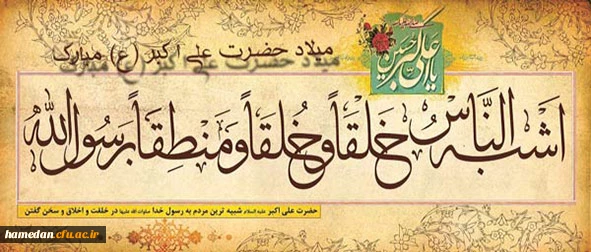 میلاد حضرت علی اکبر (ع) مبارک
یا علی اکبر حسین
اشبه الناس خَلقاً و خُلقاً و منطقاً برسول الله
حضرت علی اکبر علیه السلام شبیه ترین مردم به رسول خدا صلوات الله علیها در خلقت و اخلاق و سخن گفتن
hamedan.cfu.ac.ir